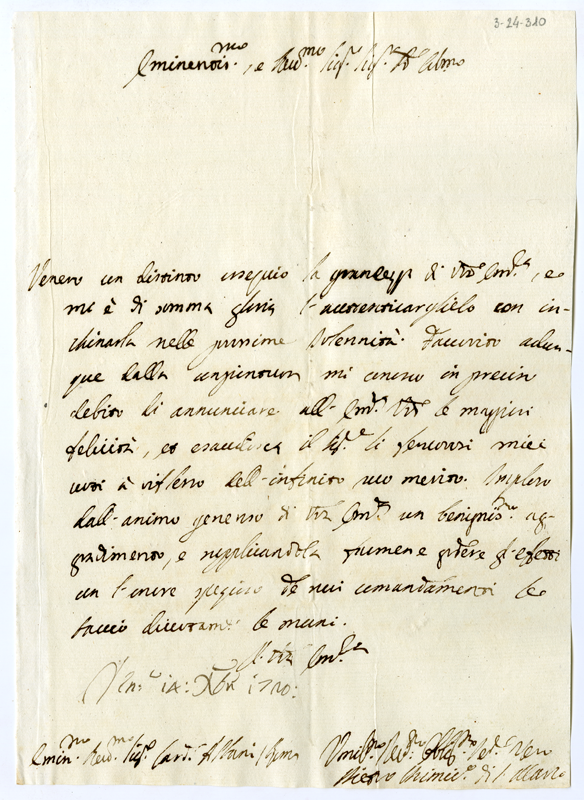 3-24-310
Eminentis.mo, e Reu.mo Sig.r Sig.r P.ne Colmo
Venero con distinto ossequio la grandezza di Vra Em.za, e
mi è di somma gloria l'autenticarglielo con in-
chinarla nelle prossime solennità. Fauorito adun-
que dalla congiuntura mi conosco in preciso
debito di annunciare all' Em.za Vra le maggiori
felicità, et esaudisca il Sig.re li feruorosi miei
uoti à riflesso dell' infinito suo merito. Imploro
dall' animo generoso di Vra Em.za un benignis.mo ag-
gradimento, e supplicandola farmene godere gl' effetti
con l'onore specioso de suoi comandamenti le
faccio diuotam.te le mani.
Di Vra Em.za
Ven.a 14: Xbre 1720:
Emin.mo Reud.mo Sig.r Card.l Albani Roma
Umil.mo Deu.mo Oblig.mo Ser.re Vero
Pietro